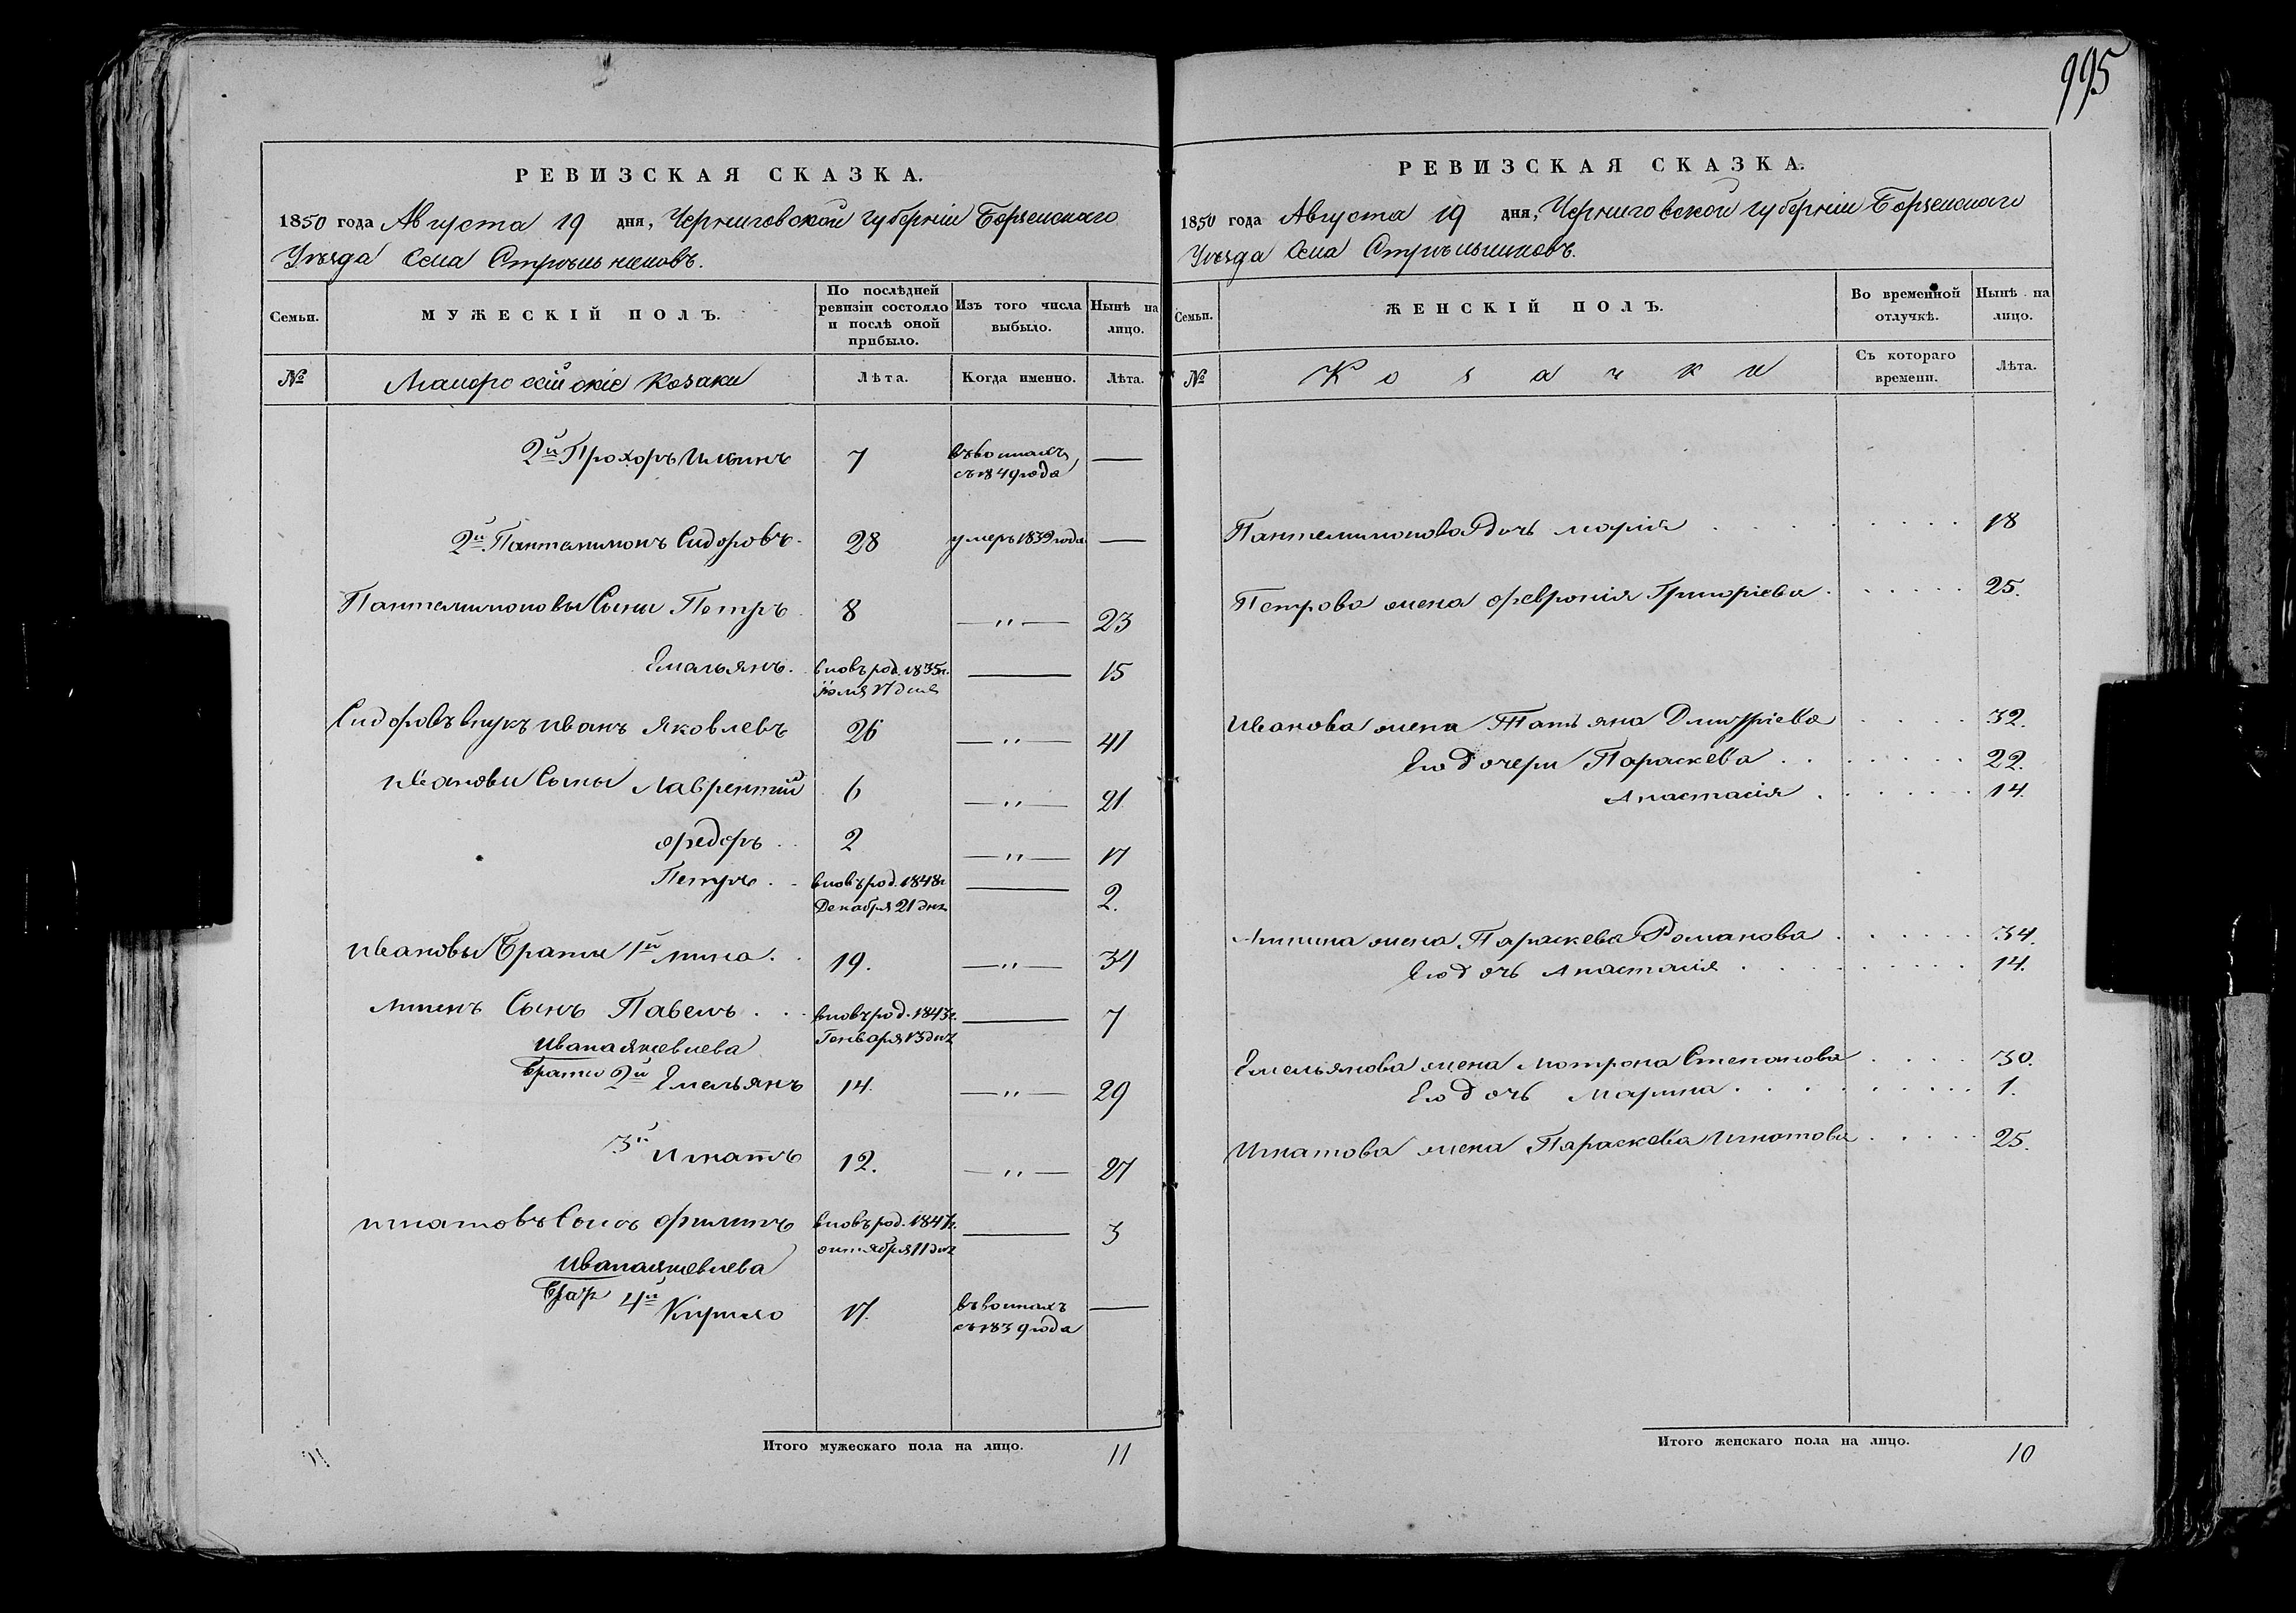 995
РЕВИЗСКАЯ СКАЗКА.
1850 года Августа 19 дня, Черниговской губерніи Борзенскаго
Уѣзда Села Стрѣльниковъ.
Семьи.
МУЖЕСКІЙ ПОЛЪ.
По послѣдней ревизіи состояло и послѣ оной прибыло.
Изъ того числа выбыло.
Нынѣ на лицо.
№
Малоросійскіе Козаки
Лѣта.
Когда именно.
Лѣта.
2й Прохоръ Ильинъ 7 въ воинахъ —
съ 1849 года
2й Пантелимонъ Сидоровъ 28 умеръ 1839 года —
Пантелимоновы Сыны Петръ 8 — " — 23
Емельянъ. вновь род. 1835г. — 15
Іюля 17 дня
Сидоровъ внукъ Иванъ Яковлевъ 26 — " — 41
Ивановы Сыны Лаврентій 6 — " — 21
Федоръ 2 — " — 17
Петръ вновь род. 1848г — 2.
Декабря 21 дня
Ивановы Браты 1й Мина 19. — " — 34
Минин Сынъ Павелъ вновь род. 1843г. — 7
Генваря 13 дня
Ивана Яковлева
Браты 2й Емельянъ 14. — " — 29
3й Игнатъ 12. — " — 27
Игнатовъ Сынъ Филипъ вновь род. 1847г. — 3
октября 11 дня
Ивана Яковлева
Бра 4й Кирило 17. въ воинахъ —
съ 1839 года
Итого мужескаго пола на лицо. 11
РЕВИЗСКАЯ СКАЗКА.
1850 года Августа 19 дня, Черниговской губерніи Борзенскаго
Уѣзда Села Стрѣльниковъ.
Семьи.
ЖЕНСКІЙ ПОЛЪ.
Во временной отлучкѣ.
Нынѣ на лицо.
№
Козачки
Съ котораго времени.
Лѣта.
Пантелимонова дочь Марія 18
Петрова жена Февронія Григоріева 25.
Иванова жена Татьяна Дмитріева 32.
Его дочери Параскева 22.
Анастасія 14.
Минина жена Параскева Романова 34.
Его дочь Анастасія 14.
Емельянова жена Мотрона Степанова 30.
Его дочь Марина 1.
Игнатова жена Параскева Игнатова 25.
Итого женскаго пола на лицо. 10